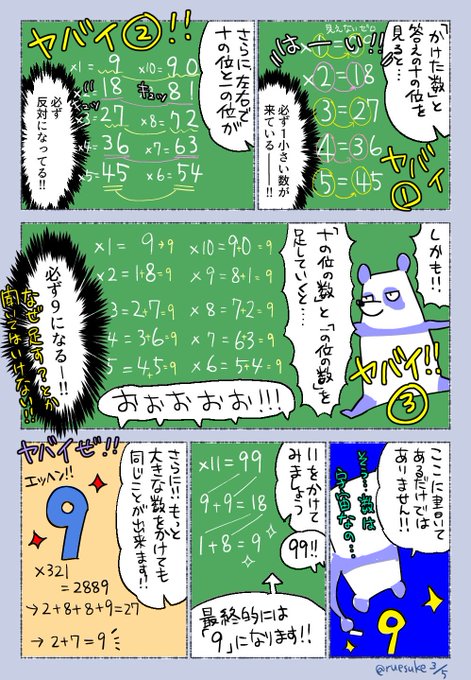 「かけた数」と
答えの十の位を
見ると…
見えないゼロ
はーい!!
×1=9
×2=18
×3=27
×4=36
×5=45
必ず1小さい数が
来ているーー!!
ヤバイ①
ヤバイ②!!
さらに左右で
十の位と一の位が
×1= 9 ×10=90
×2=18 81
キュッ
キュッ
×3=27 ×8=72
×4=36 ×7=63
×5=45 ×6=54
必ず
反対になってる!!
しかも!!
「十の位の数」と「一の位の数」を
足していくと……
ヤバイ!!
③
×1= 9→9 ×10=9+0=9
×2=1+8=9 ×9=8+1=9
×3=2+7=9 ×8=7+2=9
×4=3+6=9 ×7=6+3=9
×5=4+5=9 ×6=5+4=9
おおおおお!!!
必ず9になるー!!
なぜ足す?とか
聞いてはいけない!!
ここに書いて
あるだけでは
ありません!!
そう…数は
宇宙なの…
9
11をかけて
みましょう
99!!
×11=99
9+9=18
1+8=9
最終的には
「9」になります!!
さらに!!もっと
大きな数をかけても
同じことが出来ます!!
ヤバイぜ!!
エッヘン!!
9
×321
=2889
→2+8+8+9=27
→2+7=9
@ruesuke 3/5